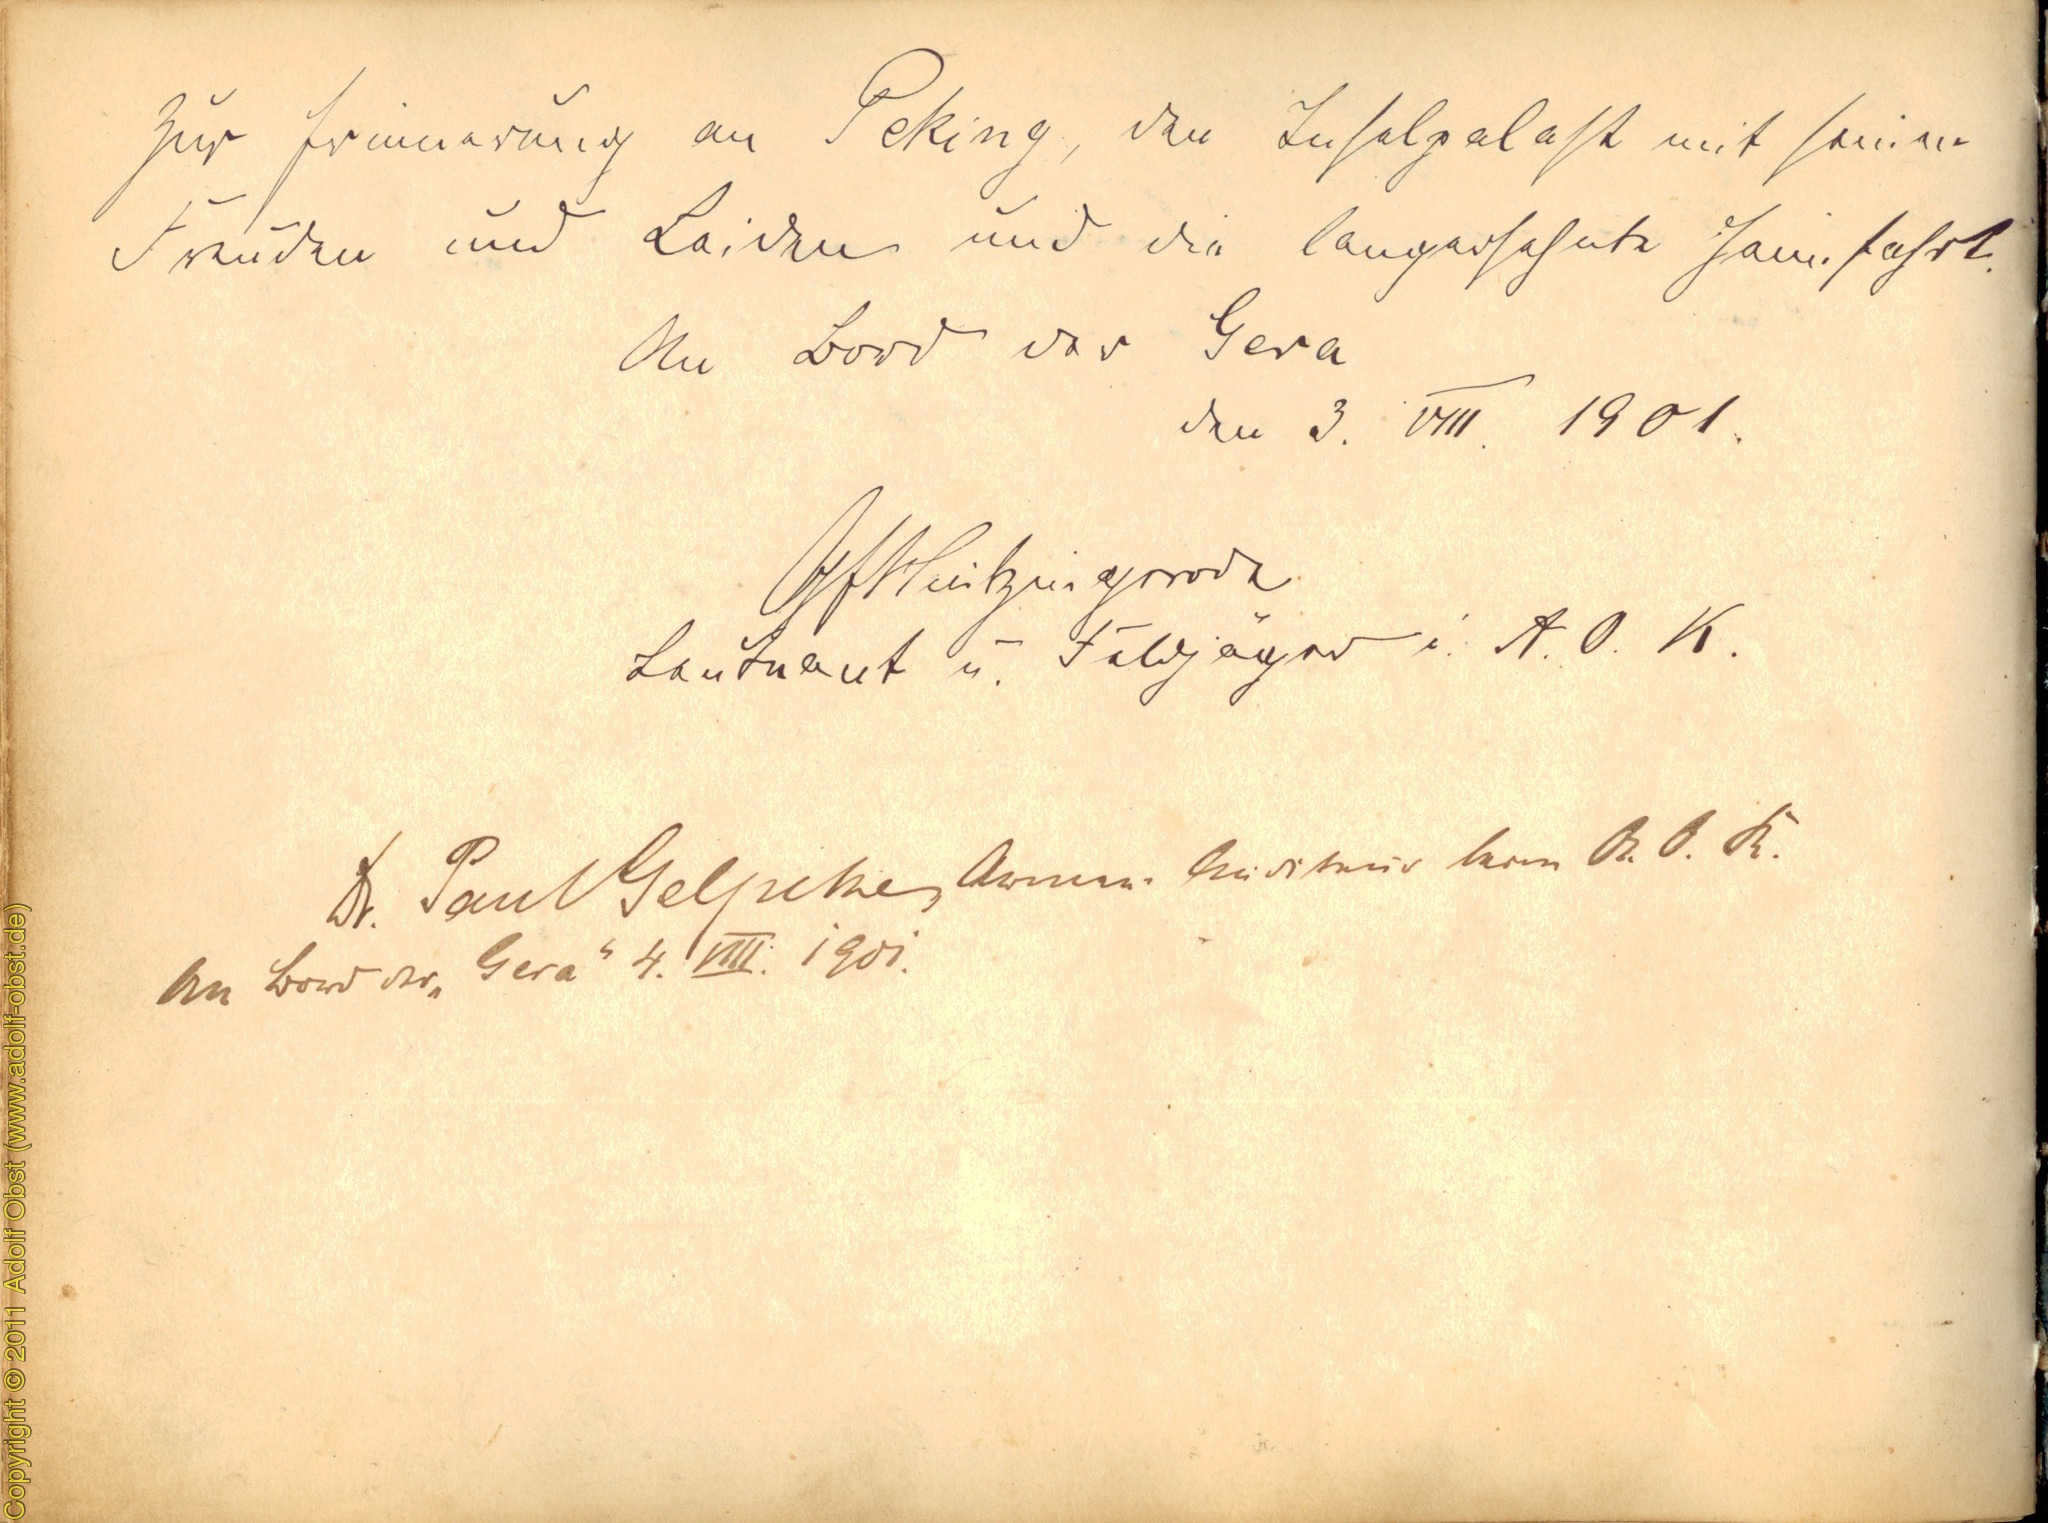 Zur Erinnerung an Peking, den Inselpalast mit seinen
Freuden und Leiden und die langersehnte Heimfahrt.
An Bord der Gera
den 3. VIII. 1901.
Wintzingerode
Leutnant u. Feldjäger i. A. O. K.
Dr. Paul Gelpcke, Armee-Auditeur beim A. O. K.
An Bord der „Gera“ 4. VIII. 1901.
Copyright © 2011 Adolf Obst (www.adolf-obst.de)